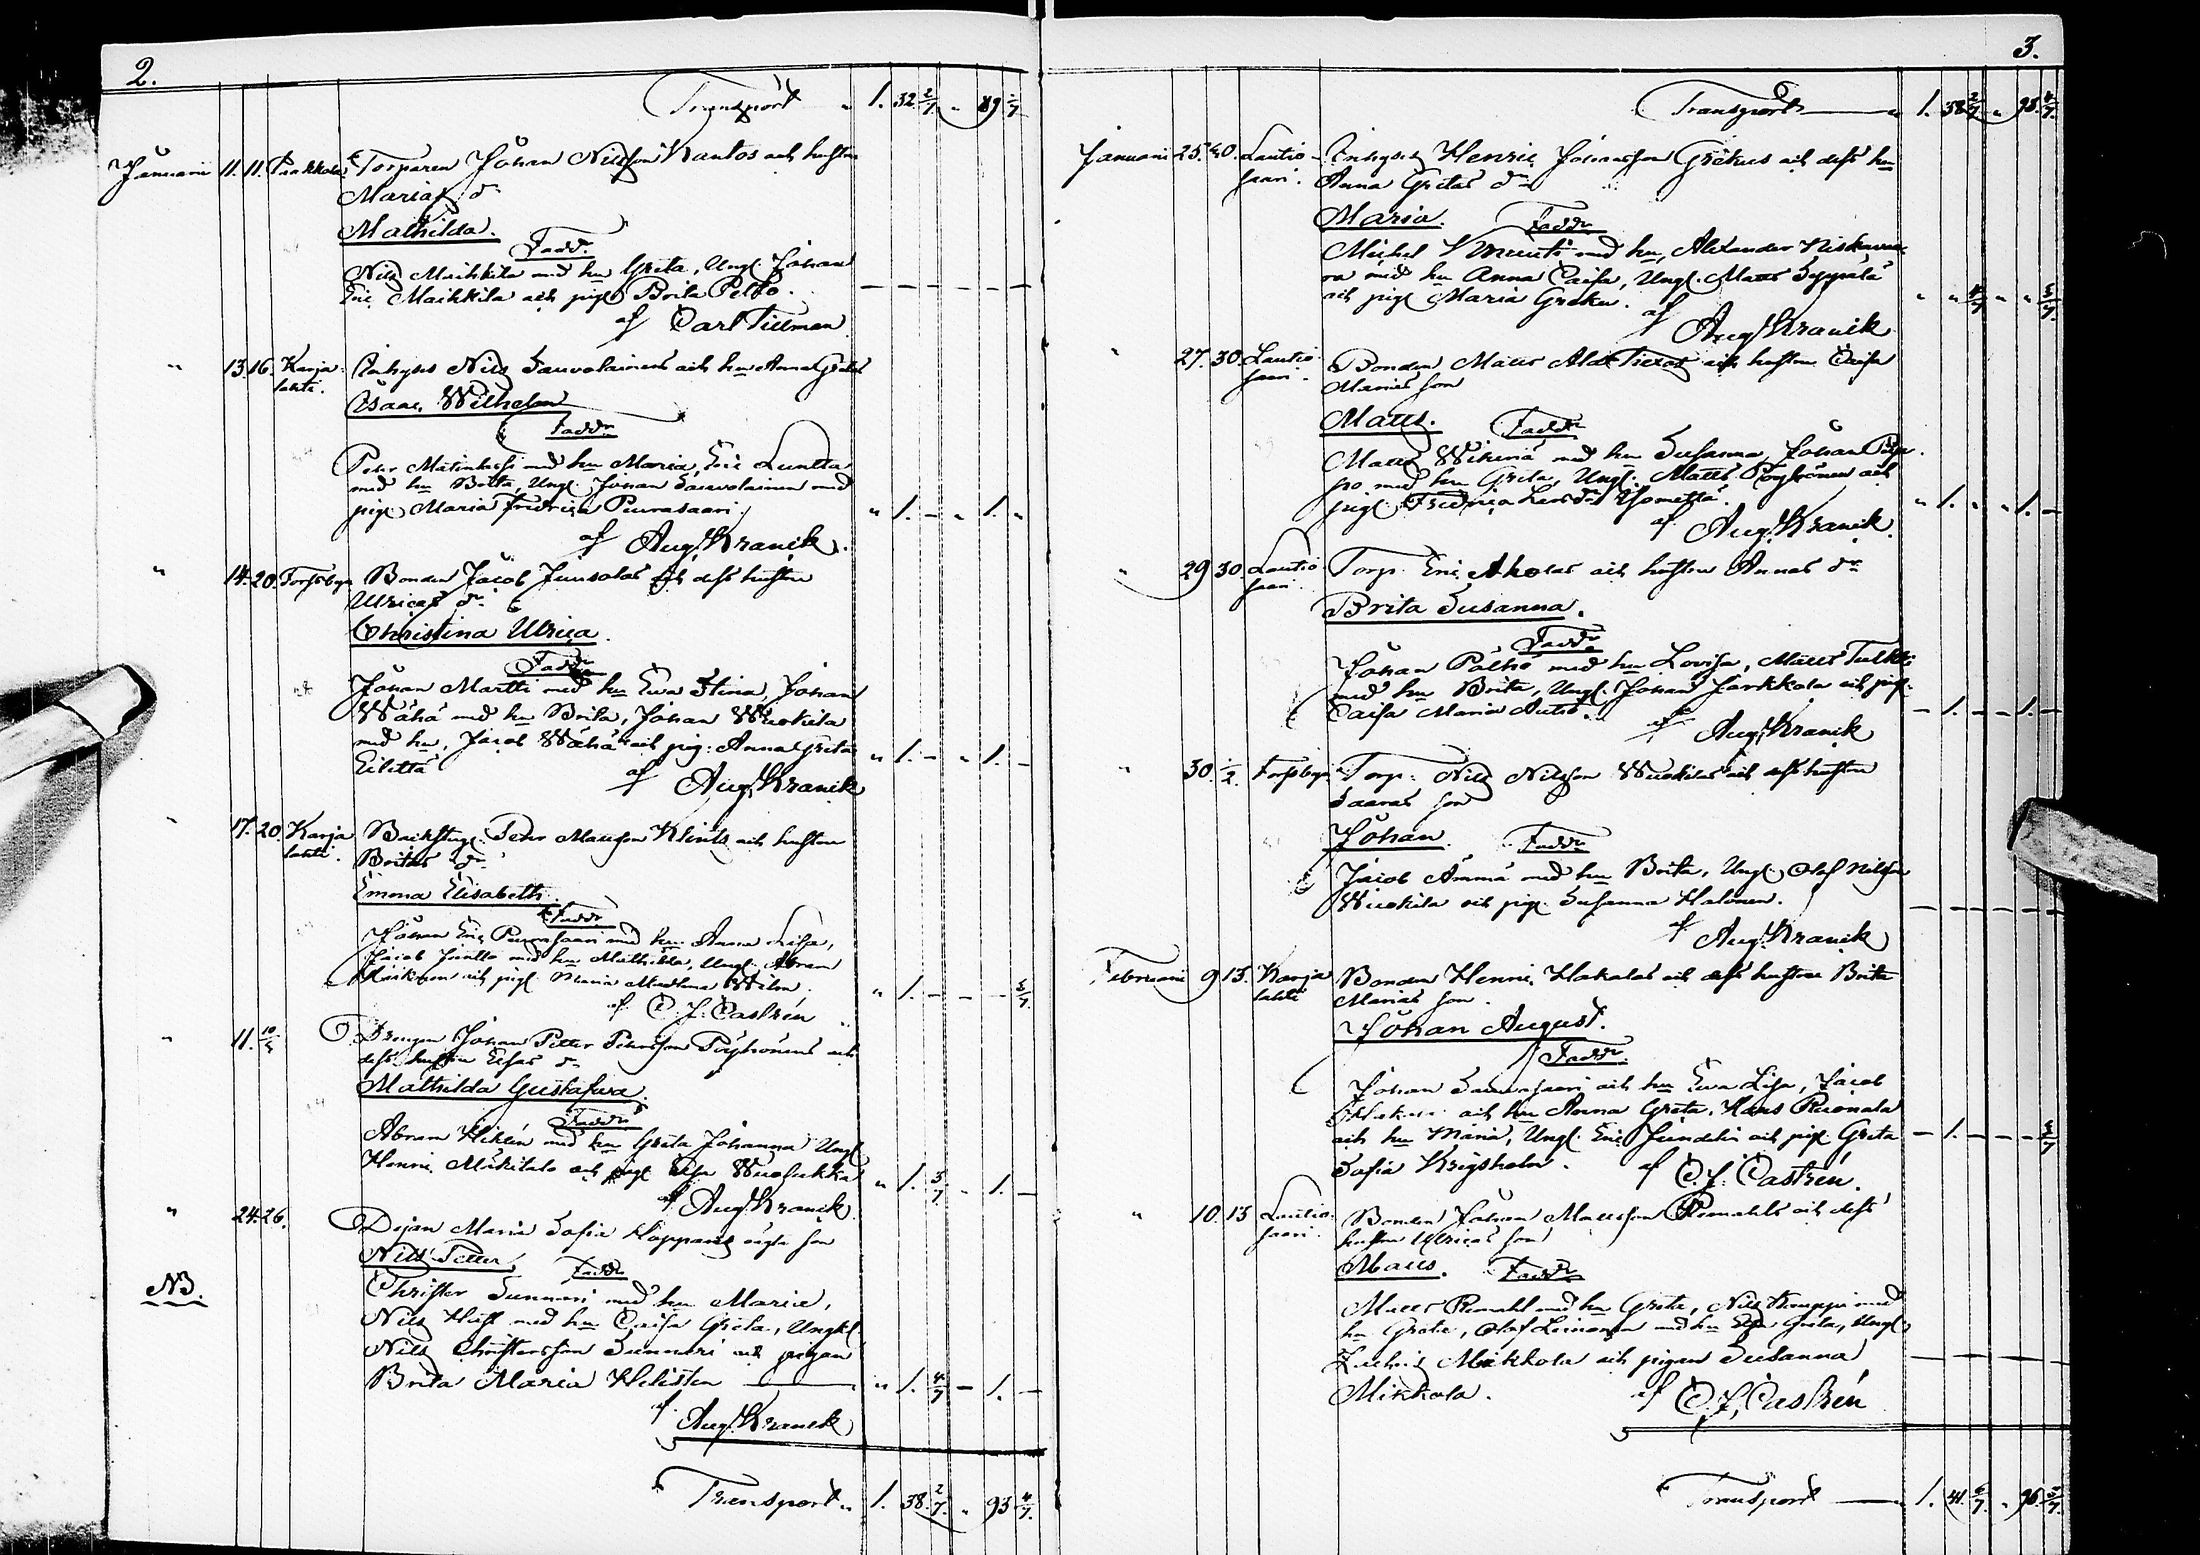 2.
Transport " 1. 32 2/7 " 89
Januari 11. 11. Paakkola Torparen Johan Nilsson Kantos och hustru
Marias dr
Mathilda.
Faddr.
Nils Maikkila med hu Greta, Ungl. Johan
Eric Maikkila och pig. Brita Pelto.
af Carl Tillman
" 13. 16. Karja- Inhyses Nils Sauvolainens och hu Anna Gretas
lahti.
Isaac Wilhelm
Faddr.
Petter med hu Maria, Eric Luntta
med hu Brita, Ungl. Johan Sauvolainen med
pig. Maria Fredrica Piurasaari. " 1. - " 1. "
af Aug. Kranck.
" 14. 20. Torpsbyn Bonden Jacob Junsolas och dess hustru
Ulricas dr.
Christina Ulrica.
Faddr.
Johan Martti med hu Ewa Stina, Johan
Wähä med hu Brita, Johan Wuokila
med hu, Jacob Wähä och pig. Anna Greta
" 1. - " 1. -
af Aug. Kranck
" 17. 20. Karja Backstug. Petr Mattsson och hustru
lahti. Britas dr.
Emma Elisabeth.
Faddr.
Johan Eric Piurasaari med hu Anna Lisa,
Jacob Juntto med hu Mathilda, Ungl. Abram
och pigl. Maria " 1. - - - 5/7
af C. J. Castrén
" 11. Drengen Johan Petter Petersson Pöyhönens och
dess hustru Elsas dr
Mathilda Gustafwa.
Faddr.
Abram med hu Greta Johanna Ungl.
Henric Mäkitalo och pigl. Elsa " 1. 5/7 " 1. -
af Aug. Kranck
" 24. 26. Dejan Maria Sofia Koppans oägta son
Nils Petter,
Faddr
NB.
Christer Sunnari med hu Maria,
Nils med hu Caisa Greta, Ungkl.
Nils Christersson Sunnari och pigan
Brita Maria Helisten " 1. 4/7 - 1. -
af Aug. Kranck
Transport " 1. 38. 2/7. " 93 4/7.
3.
Transport " 1. 38 2/7 " 93. 4/7.
Januari 25. 30. Lautio- Inhyses Henric Johansson Grekus och dess hu
saari. Anna Gretas dr
Maria. Faddr
Michel med hu, Alexander
med hu Anna Caisa, Ungl. Matts Seppälä
och pigl Maria Greku. " " 4/7 " " 5/7
af Aug. Kranck
" 27. 30. Lautio Bonden Matts och hustru Caisa
saari. Marias son
Matts. Faddr
Matts med hu Susanna, Johan
med hu Greta, Ungl. Matts Pöyhönen och
pigl. Fredrica " 1. " " 1. -
af Aug. Kranck.
" 29 30. Lautio Torp. Eric Aholas och hustru Annas dr
saari.
Brita Susanna.
Faddr
Johan med hu Lovisa, Matts Tulkki
med hu Brita, Ungl. Johan Jarkkola och pigl.
Caisa Maria - 1. - - 1. -
af Aug. Kranck
" 30. Torpsbyn Torp. Nils Nilsson Wuokilas och dess hustru
Saaras son
Johan. Faddr
Jacob Ämmä med hu Brita, Ungl. Olof Nilsson
Wuokila och pigl. Susanna Halonen.
af Aug. Kranck
Februari 9 13. Karja Bonden Henric Hakalas och dess hustru Brita
lahti Marias son.
Johan August.
Faddr.
Johan och hu Ewa Lisa, Jacob
och hu Anna Greta, Hans Ruonala
och hu Maria, Ungl. Eric och pigl Greta - 1. - - - 5/7
Sofia Krigsholm. af C. J. Castrén.
" 10. 13 Lautio- Bonden Johan Mattsson och dess
saari. hustru Ulricas son
Matts. Faddr
Matts med hu Greta, Nils med
hu Greta, Olof med hu Greta, Ungl.
Ludvig Mikkola och pigan Susanna
Mikkola. af C. J. Castrén
Transport 1. 41. 6/7. " 96. 5/7.